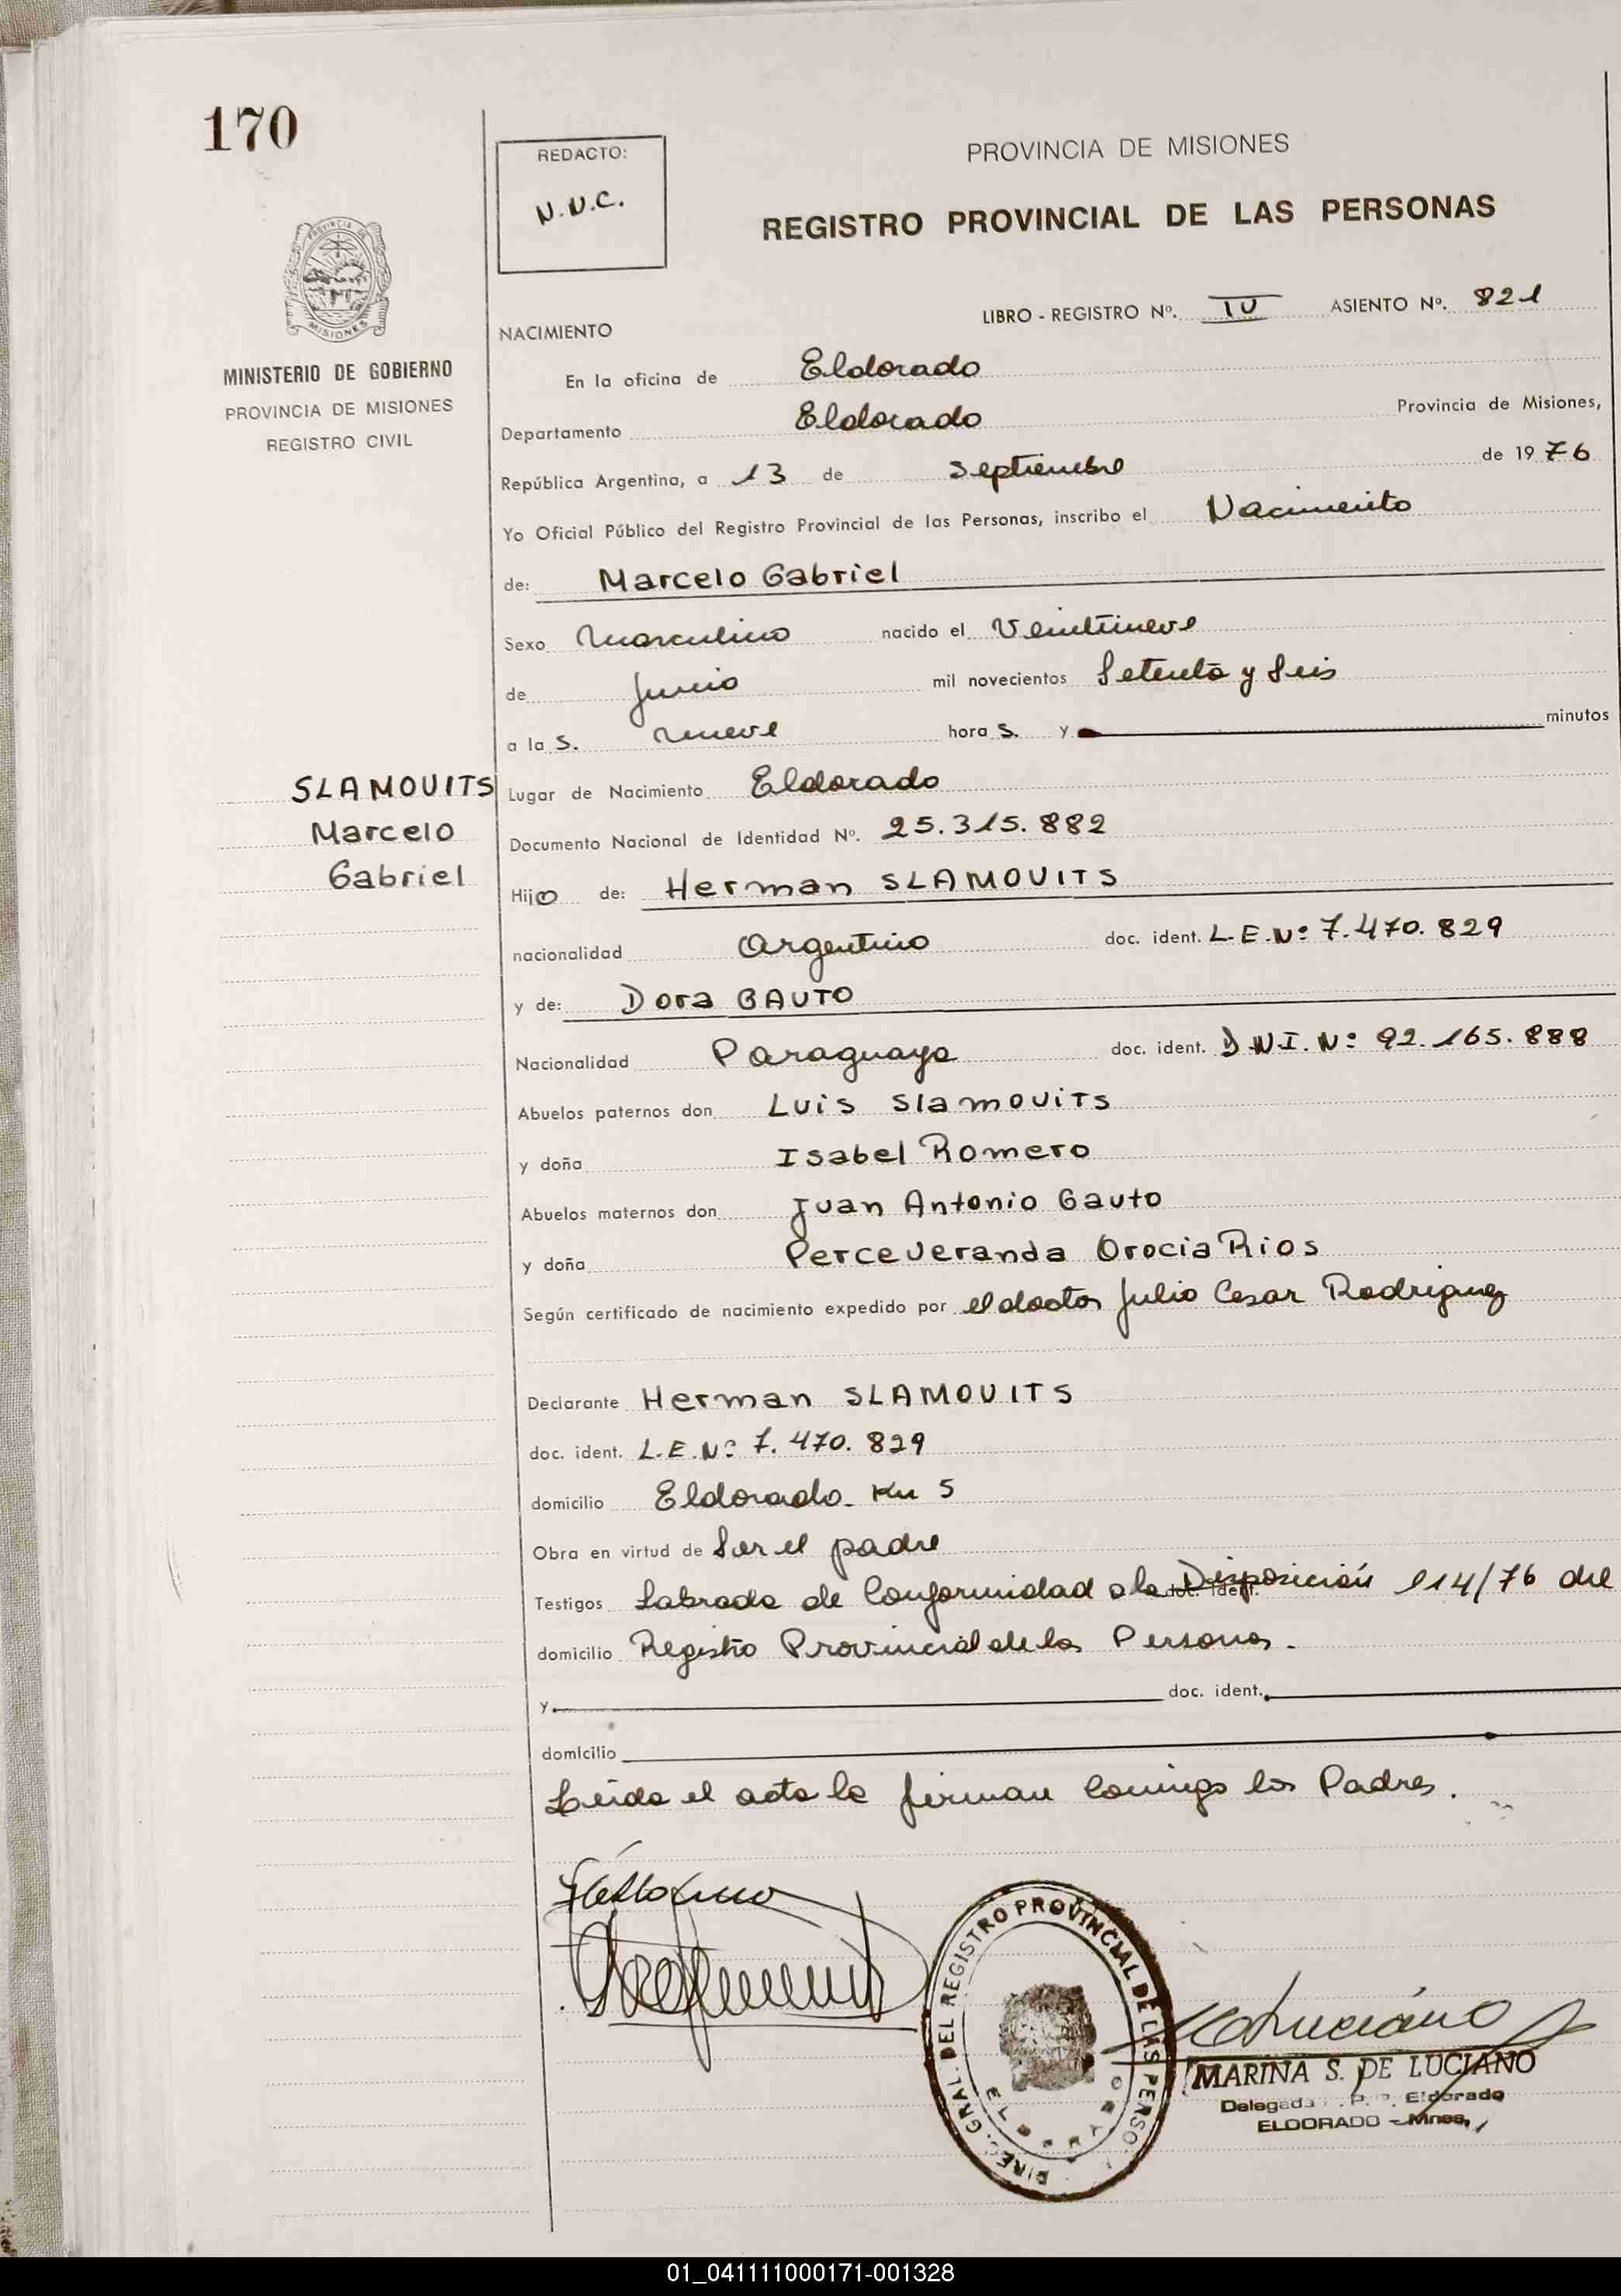 170
REDACTO:
N.N.C.
PROVINCIA DE MISIONES
REGISTRO PROVINCIAL DE LAS PERSONAS
PROVINCIA DE
MISIONES
MINISTERIO DE GOBIERNO
PROVINCIA DE MISIONES
REGISTRO CIVIL
LIBRO - REGISTRO Nº. IV ASIENTO Nº. 821
NACIMIENTO
En la oficina de Eldorado
Departamento Eldorado Provincia de Misiones,
República Argentina, a 13 de septiembre de 1976
Yo Oficial Público del Registro Provincial de las Personas, inscribo el Nacimiento
de: Marcelo Gabriel
Sexo Masculino nacido el Veintinueve
de Junio mil novecientos Setenta y Seis
a la s. nueve hora s. y minutos
SLAMOVITS
Marcelo
Gabriel
Lugar de Nacimiento Eldorado
Documento Nacional de Identidad Nº. 25.315.882
Hijo de: Herman SLAMOVITS
nacionalidad Argentino doc. ident. L.E.Nº 7.470.829
y de: Dora GAUTO
Nacionalidad Paraguaya doc. ident. D.N.I. Nº 92.165.888
Abuelos paternos don Luis Slamovits
y doña Isabel Romero
Abuelos maternos don Juan Antonio Gauto
y doña Perceveranda Orocia Rios
Según certificado de nacimiento expedido por el doctor Julio Cesar Rodriguez
Declarante Herman SLAMOVITS
doc. ident. L.E.Nº 7.470.829
domicilio Eldorado. Km 5
Obra en virtud de Ser el padre
Testigos Labrada de Conformidad a la Disposición 114/76 del
domicilio Registro Provincial de las Personas.
y doc. ident.
domicilio
Leida el acta la firman Conmigo los Padres.
DIREC. GRAL. DEL REGISTRO PROVINCIAL DE LAS PERSO.
ELDORADO
MARINA S. DE LUCIANO
Delegada R.P.P. Eldorado
ELDORADO - Mnes.
01_041111000171-001328